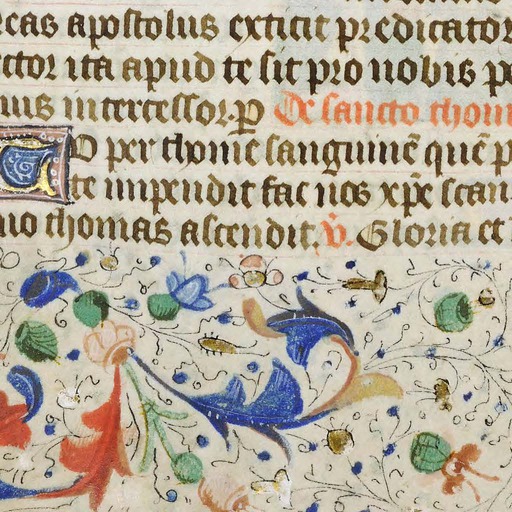 reas apostolus extitit predicator
ctor ita apud te sit pro nobis pe
nuis intercessor. P De sancto thom
Tu per thome sanguinē quē p
te inpendit fac nos xp̄e scan
uo thomas ascendit. V̄. Gloria et